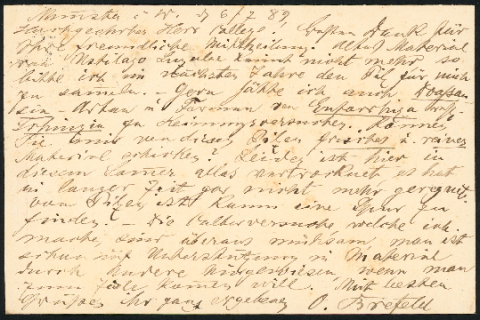 Münster i. W. d 6/7 89
Hochgeehrter Herr College! Besten Dank für
Ihre freundliche Mittheilung. Altes Material
von nicht mehr so
bitte ich im nächsten Jahre den Pilz für mich
zu sameln. — Gern hätte ich auch
- Arten u. Formen von
zu Können
Sie mir von diesen Pilzen frisches u. reines
Material schicken? Leider ist hier in
diesem Sommer alles vertrocknet es hat
in langer Zeit gar nicht mehr geregnet.
von Pilzen ist kaum eine Spur zu
finden. — Die Culturversuche welche ich
mache, sind überaus mühsam, man ist
auf Unterstützung in Material
durch Andere angewiesen wenn man
zum Ziele komen will. Mit besten
Grüßen Ihr ganz ergebener O. Brefeld